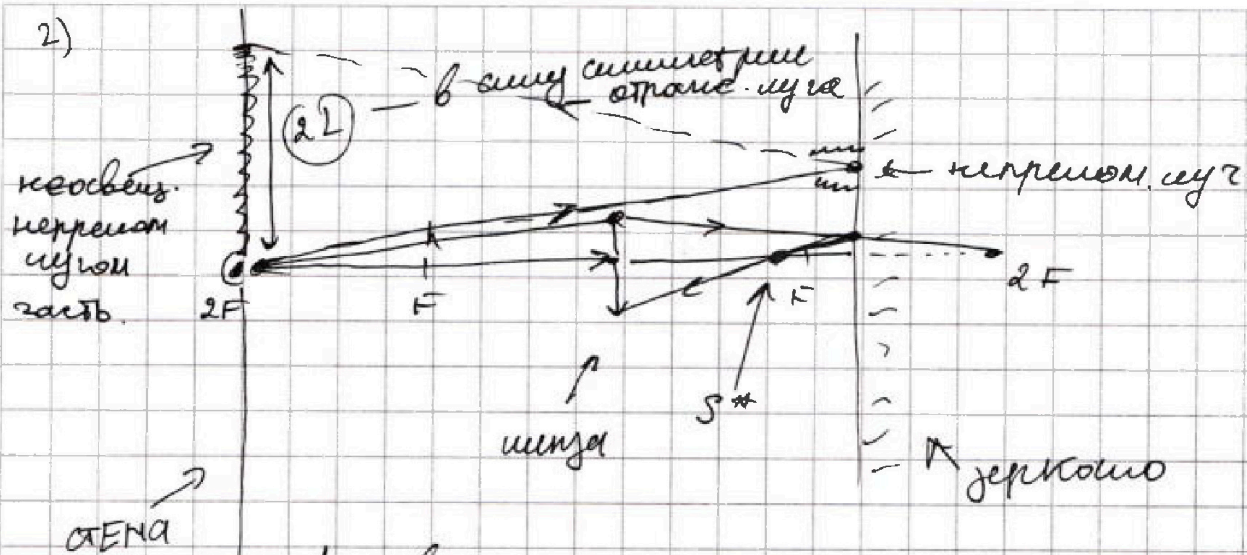 2)
2L — в силу симметрии
отраж. луча
неосвещ.
непрелом
лучом
часть.
← непрелом. луч
2F
F
F
2F
S*
линза
зеркало
СТЕНА